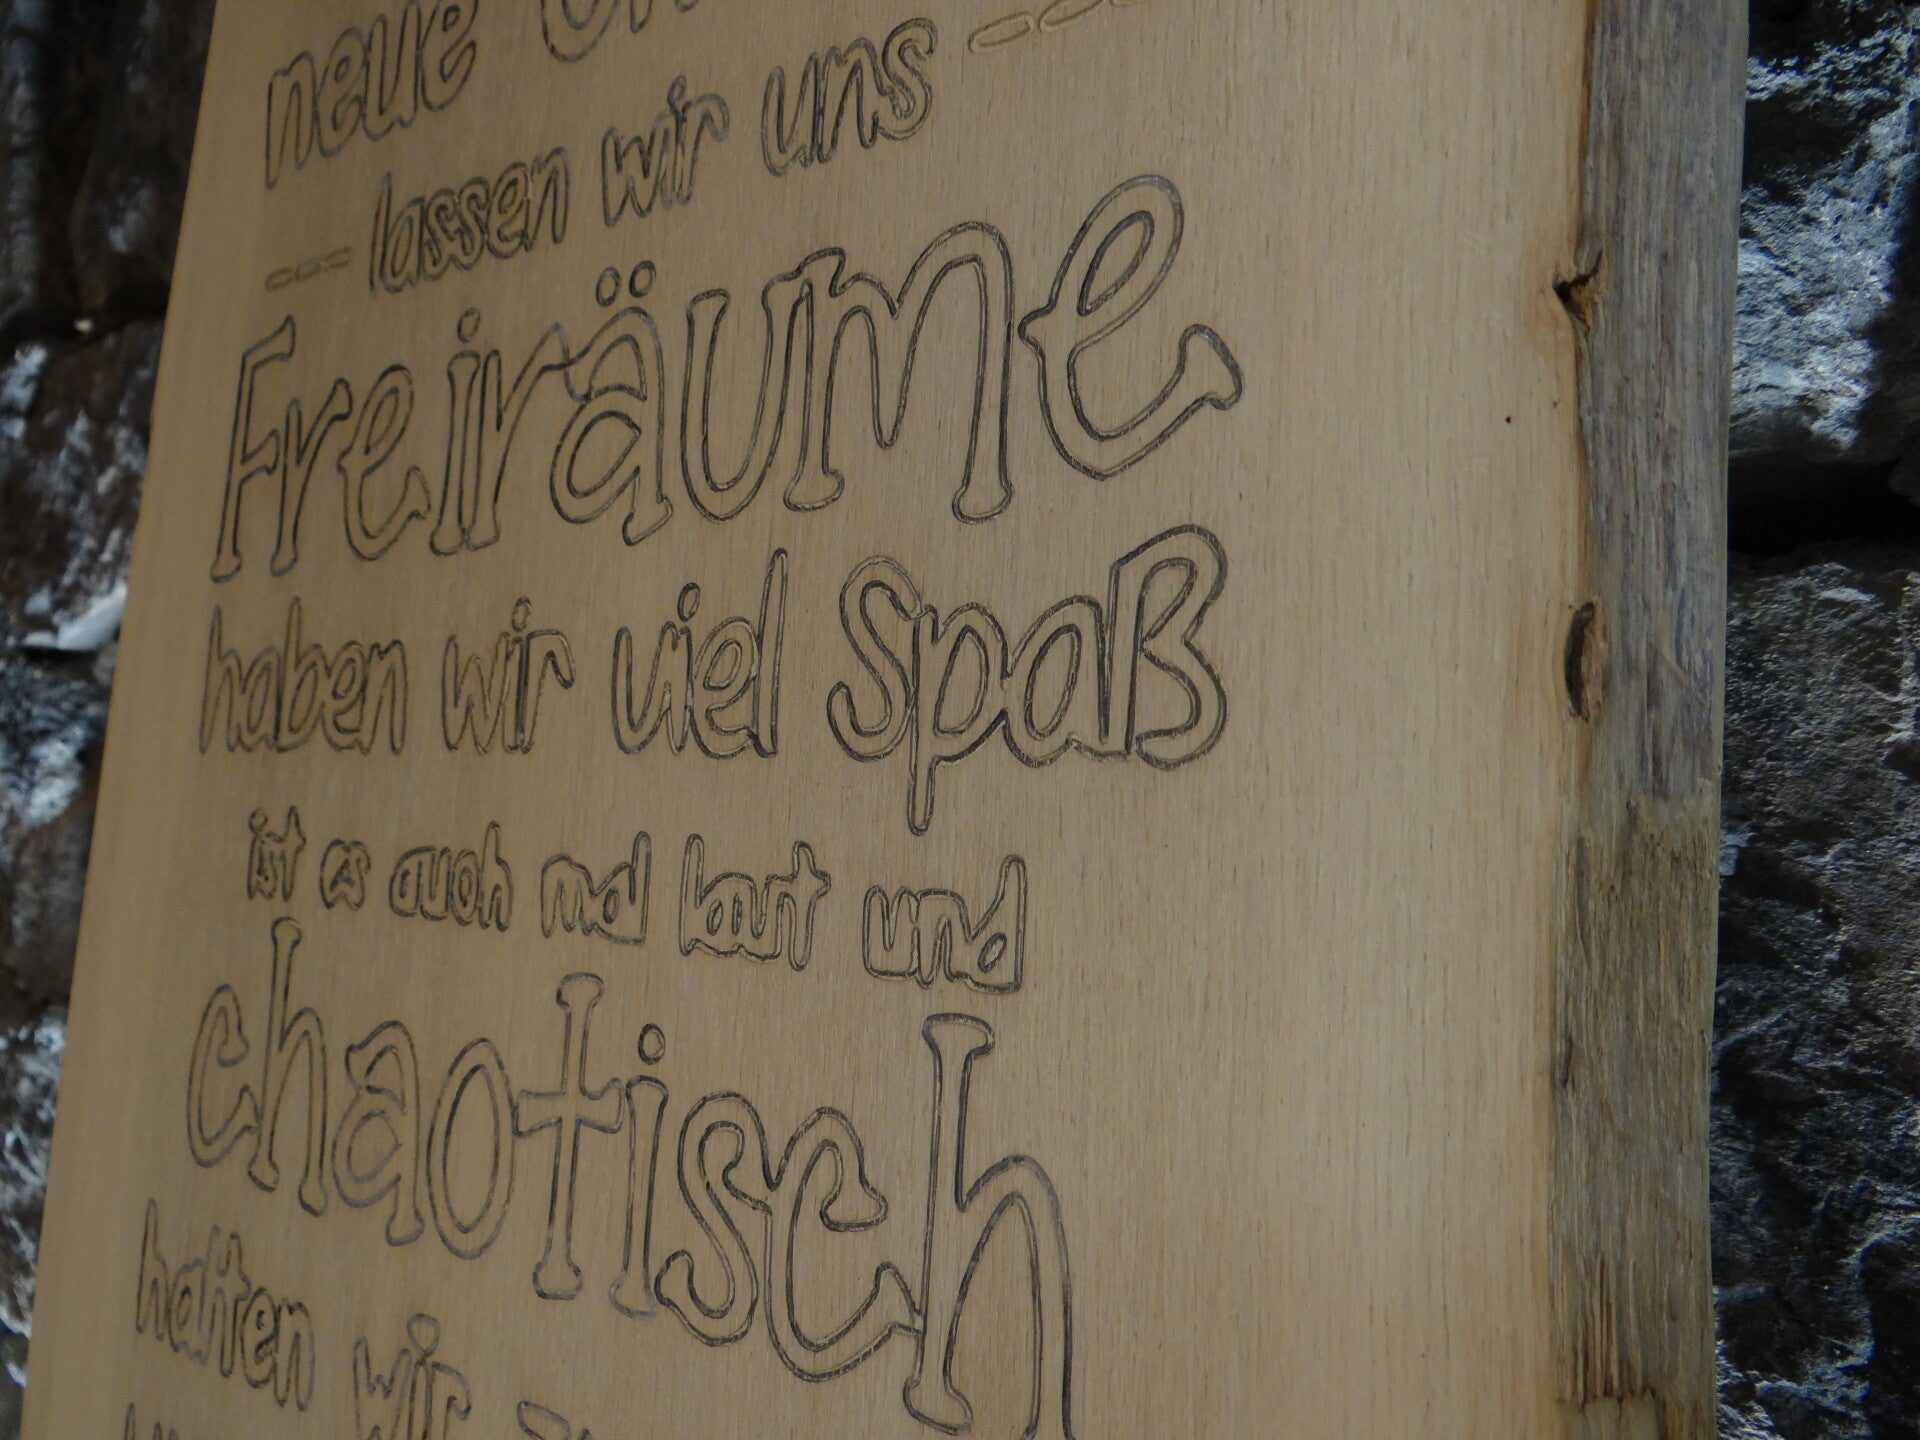 neue
lassen wir uns
Freiräume
haben wir viel Spaß
ist es auch mal laut und
chaotisch
halten wir